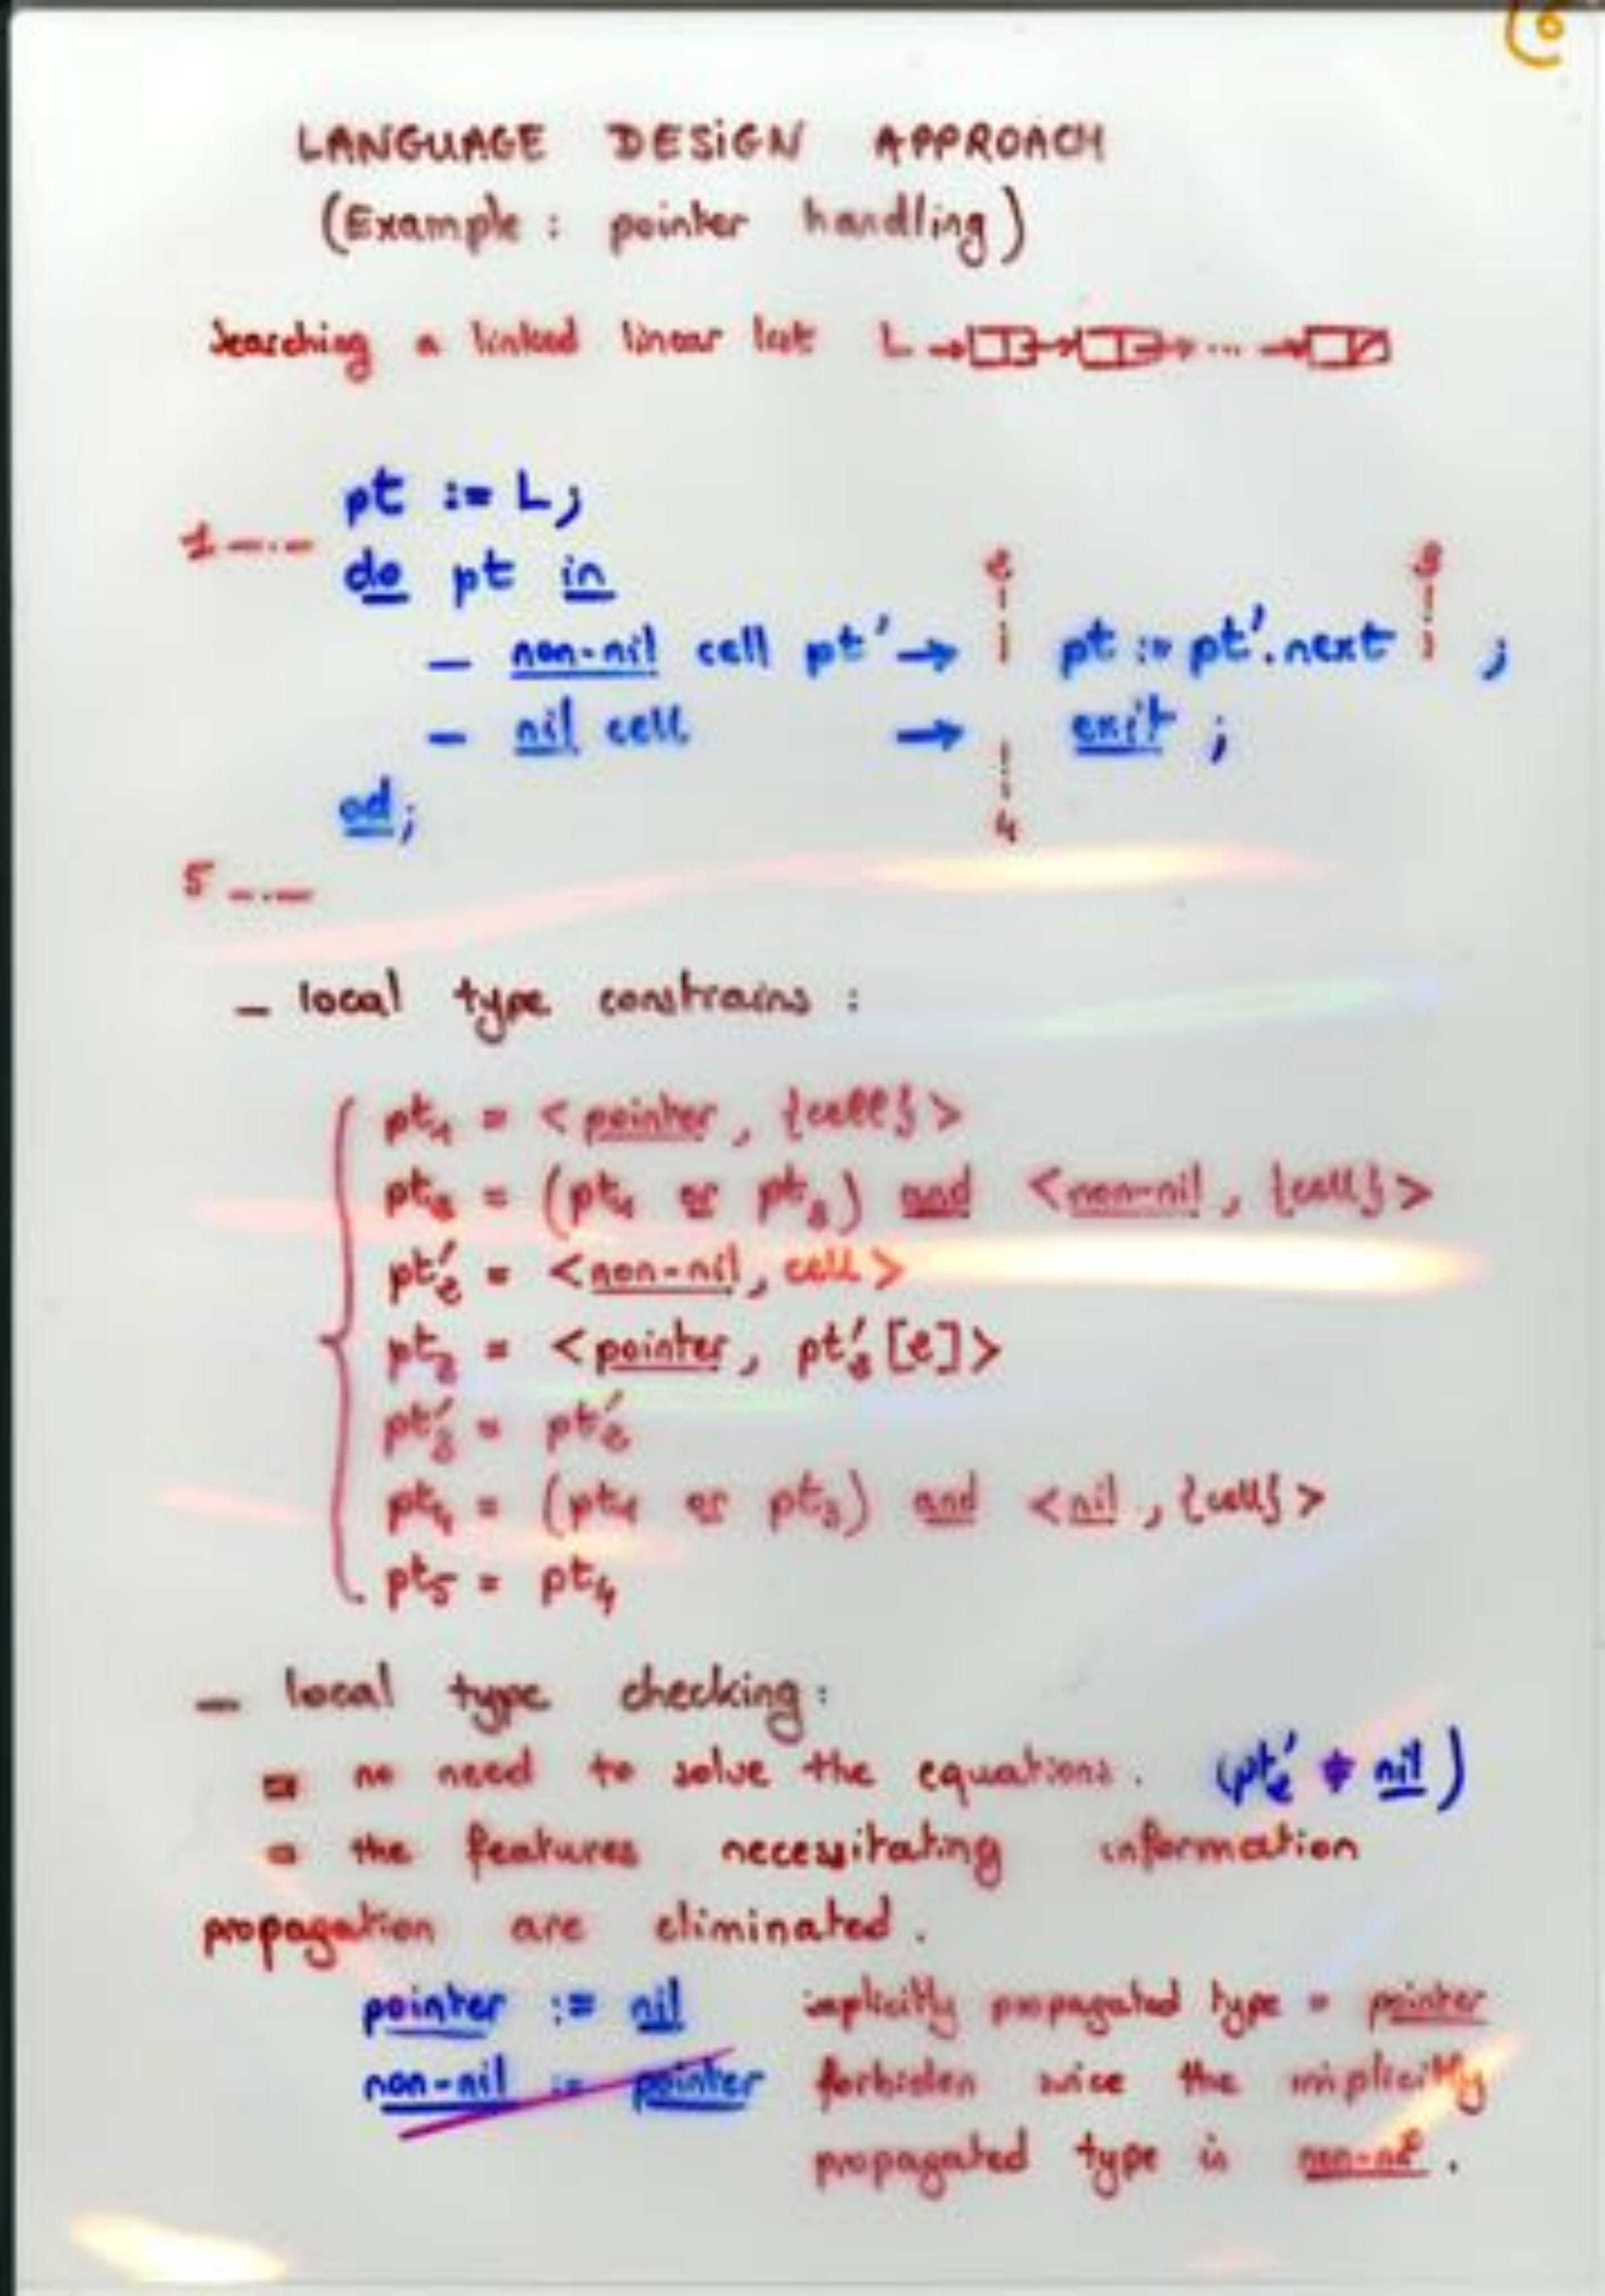 6
LANGUAGE DESIGN APPROACH
(Example : pointer handling)
Searching a linked linear list L → → → ... →
pt := L;
1
do pt in
2 3
- non-nil cell pt' → pt := pt'.next ;
- nil cell → exit ;
od;
4
5
- local type constrains :
pt₁ = < pointer, {cell} >
pt₂ = (pt₁ or pt₃) and < non-nil, {cell} >
pt'₂ = < non-nil, cell >
pt₃ = < pointer, pt'₂[2] >
pt'₃ = pt'₂
pt₄ = (pt₁ or pt₃) and < nil, {cell} >
pt₅ = pt₄
- local type checking :
no need to solve the equations. (pt'₂ ≠ nil)
the features necessitating information
propagation are eliminated.
pointer := nil implicitly propagated type = pointer
non-nil := pointer forbiden since the implicitly
propagated type is non-nil.